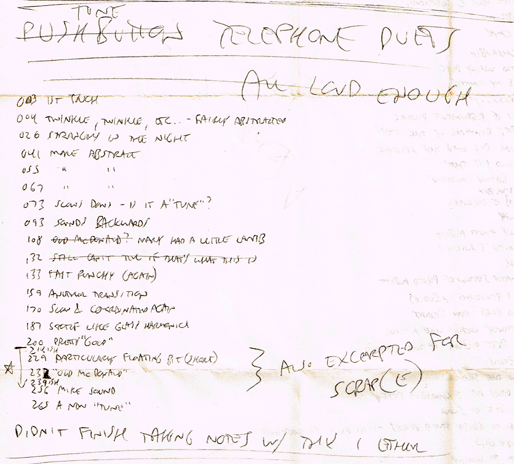 TUNE
PUSHBUTTON TELEPHONE DUETS
ALL LOUD ENOUGH
003 1ST TUCH
004 TWINKLE, TWINKLE, ETC.. - FAIRLY ABSTRACTED
026 STRANGERS IN THE NIGHT
041 MORE ABSTRACT
055 " "
067 " "
073 SLOWS DOWN - IS IT A "TUNE"?
093 SOUNDS BACKWARDS
108 OLD McDONALD? MARY HAD A LITTLE LAMB
132 STILL CAN'T TELL IF THAT'S WHAT THIS IS
133 FAST PUNCHY (AGAIN)
159 ANOTHER TRANSITION
170 SLOW & CO-ORDINATED AGAIN
187 SORTA LIKE GLASS HARMONICA
200 PRETTY "GOOD"
229 PARTICULARLY FLOATING BIT (SHORT)
232 "OLD McDONALD"
256 MORE SOUND
265 A NEW "TUNE"
ALSO EXCERPTED FOR
SCRAP(E)
DIDN'T FINISH TAKING NOTES W/ THIS 1 EITHER